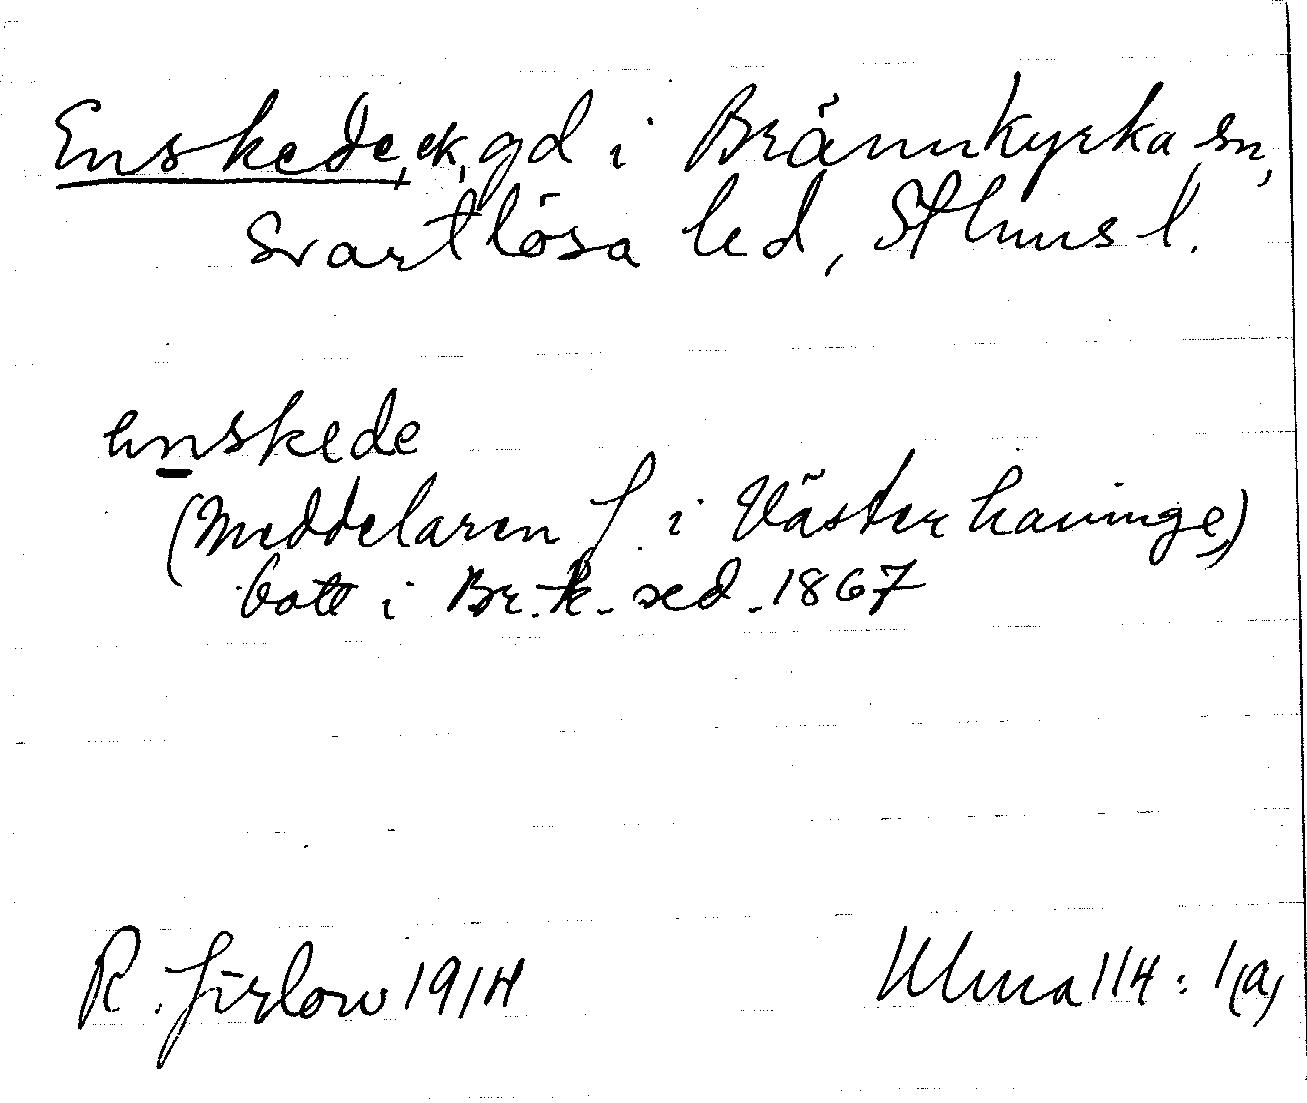 Enskede, ek, gd i Brännkyrka sn,
Svartlösa hd, Sthms l.
enskede
(Meddelaren f. i Västerhaninge,)
bott i Br.k. sed. 1867
R. Jirlow 1914
Ulma 114: 1(a)